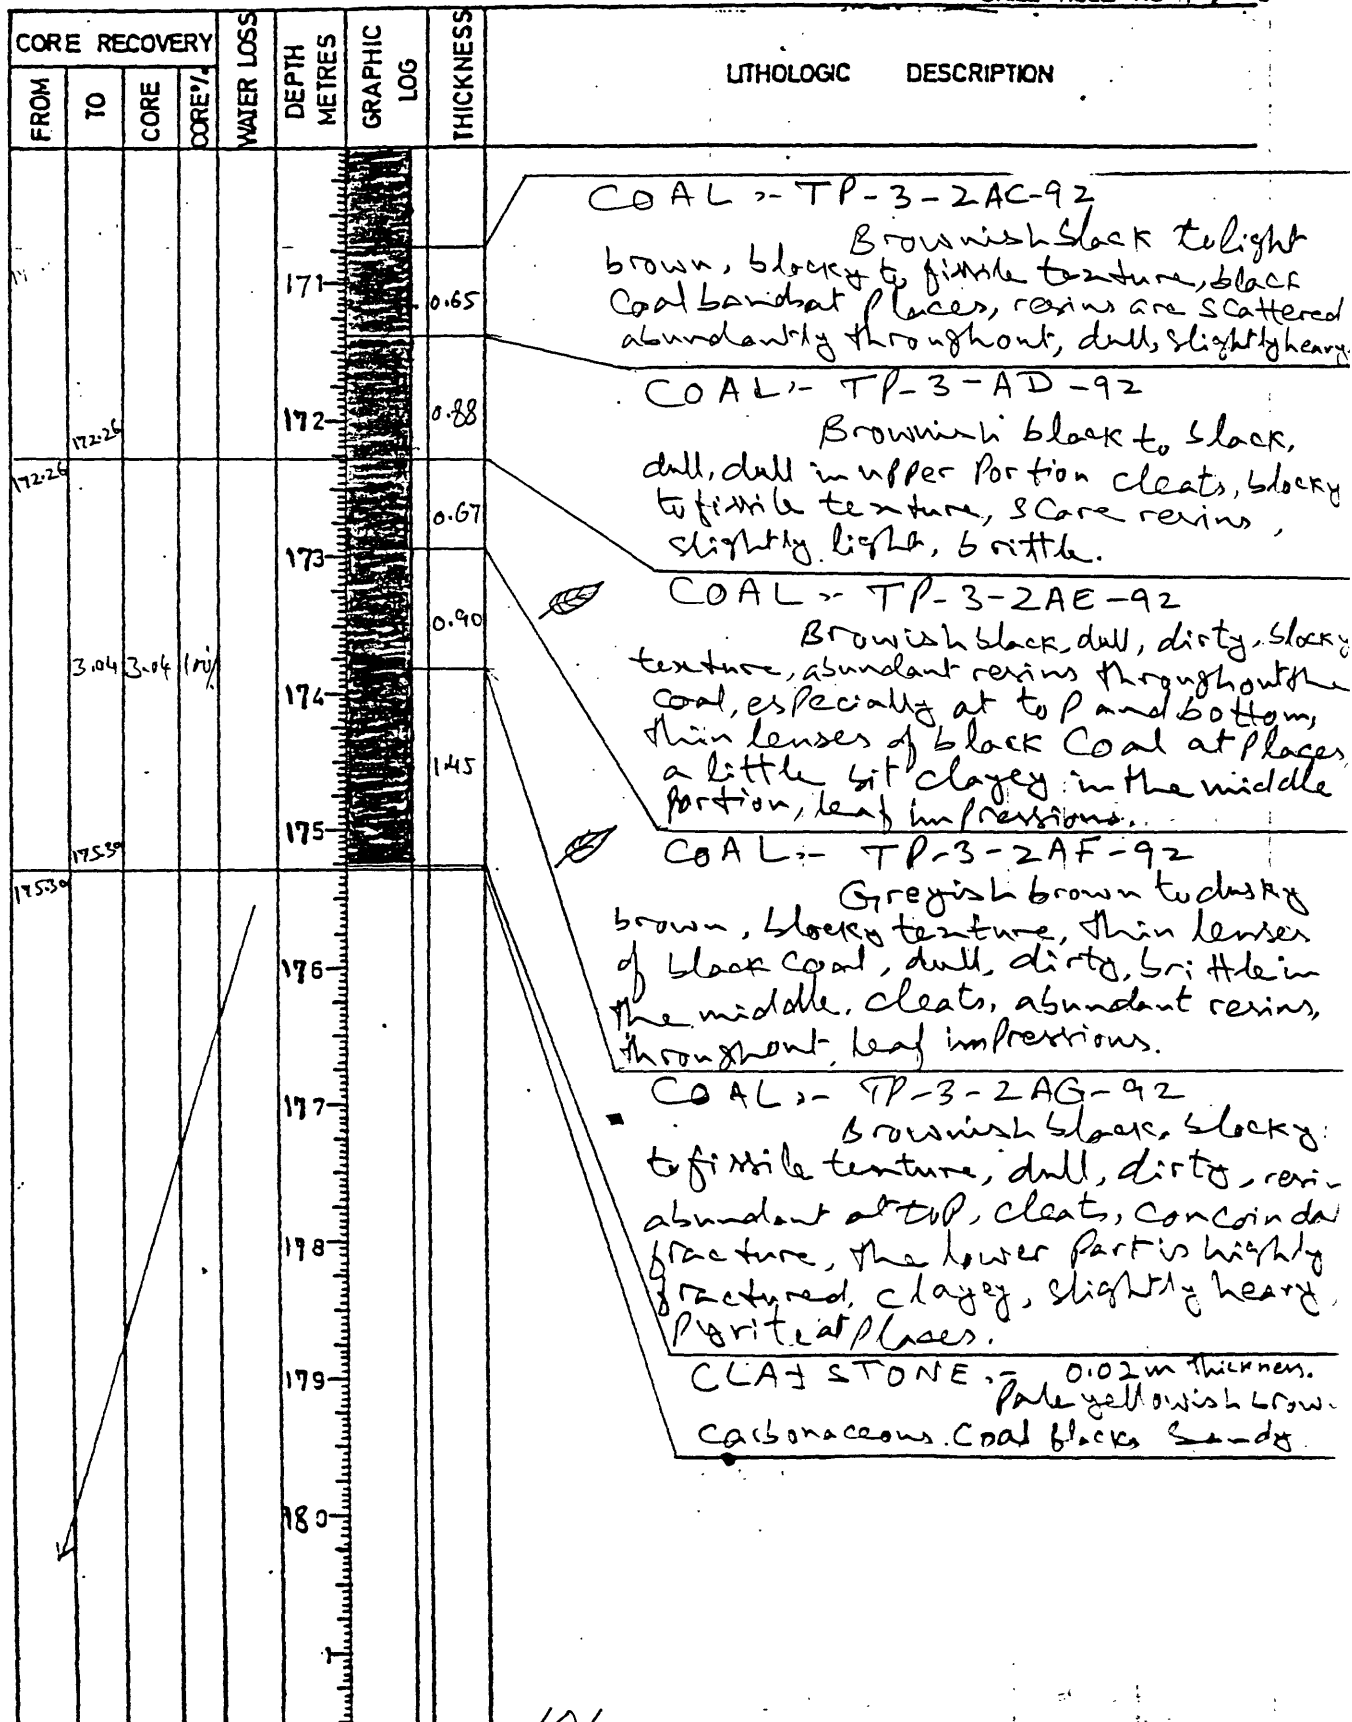 CORE RECOVERY
FROM
TO
CORE
CORE%
WATER LOSS
DEPTH METRES
GRAPHIC LOG
THICKNESS
LITHOLOGIC DESCRIPTION
171
172
173
174
175
176
177
178
179
180
172.26
172.26
3.04 3.04 100%
175.30
175.30
0.65
0.88
0.67
0.90
1.45
COAL :- TP-3-2AC-92
Brownish black to light
brown, blocky to fissile texture, black
Coal bands at places, resins are scattered
abundantly throughout, dull, slightly heavy.
COAL :- TP-3-AD-92
Brownish black to black,
dull, dull in upper Portion cleats, blocky
to fissile texture, scare resins,
slightly light, brittle.
COAL :- TP-3-2AE-92
Browish black, dull, dirty, blocky
texture, abundant resins throughout the
coal, especially at top and bottom,
thin lenses of black Coal at Places,
a little bit clayey in the middle
portion, leaf impressions.
COAL :- TP-3-2AF-92
Greyish brown to dusky
brown, blocky texture, thin lenses
of black coal, dull, dirty, brittle in
the middle, cleats, abundant resins,
throughout, leaf impressions.
COAL :- TP-3-2AG-92
Brownish black, blocky
to fissile texture, dull, dirty, resin
abundant at top, cleats, concoindal
fracture, the lower Part is highly
fractured, clayey, slightly heavy,
Pyrite at places.
CLAYSTONE :- 0.02m thickness.
Pale yellowish brow.
Carbonaceous. Coal flecks Sandy